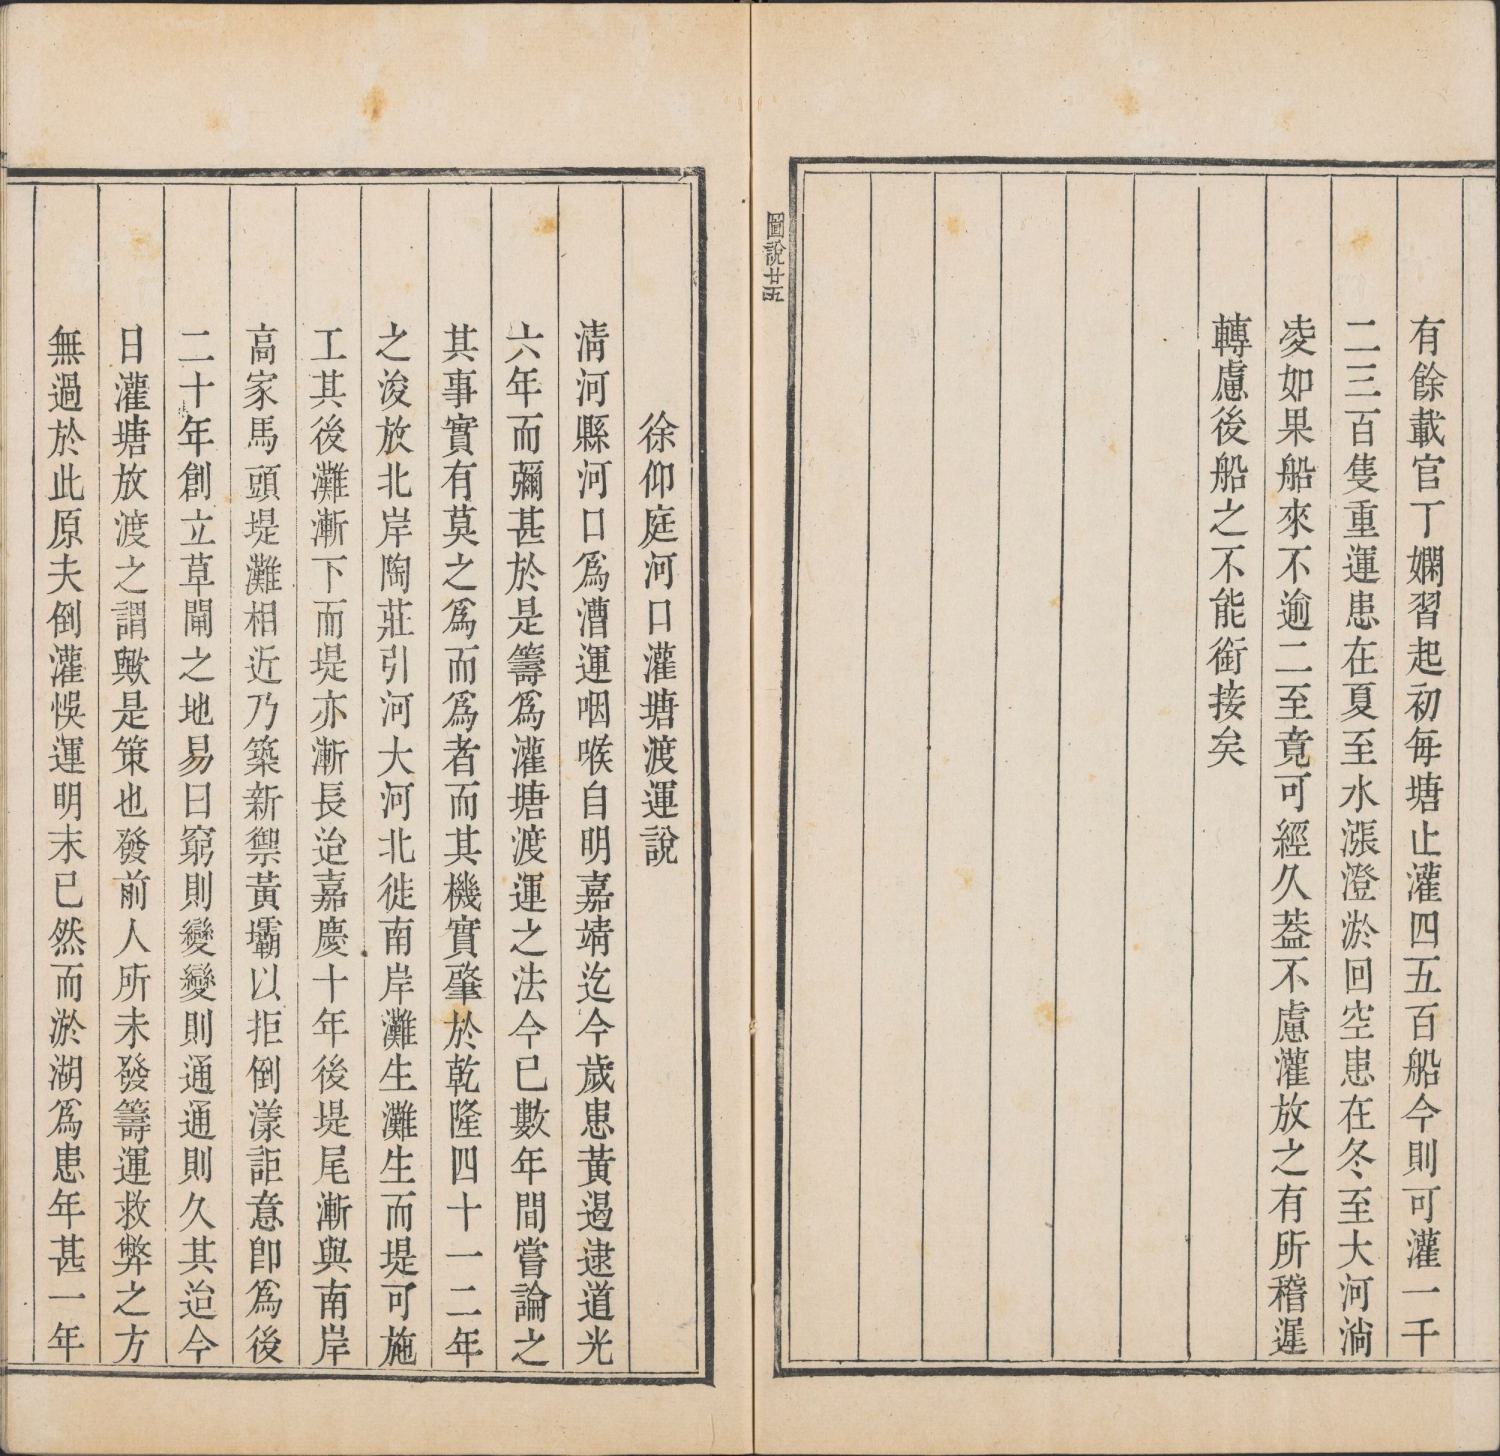 有餘載官丁嫻習起初每塘止灌四五百船今則可灌一千
二三百隻重運患在夏至水漲澄淤回空患在冬至大河淌
凌如果船來不逾二至竟可經久葢不慮灌放之有所稽遲
轉慮後船之不能銜接矣
圖說廿五
徐仰庭河口灌塘渡運說
淸河縣河口爲漕運咽喉自明嘉靖迄今歲患黃遏逮道光
六年而彌甚於是籌爲灌塘渡運之法今已數年間嘗論之
其事實有莫之爲而爲者而其機實肇於乾隆四十一二年
之浚放北岸陶莊引河大河北徙南岸灘生灘生而堤可施
工其後灘漸下而堤亦漸長迨嘉慶十年後堤尾漸與南岸
高家馬頭堤灘相近乃築新禦黃壩以拒倒漾詎意卽爲後
二十年創立草閘之地易曰窮則變變則通通則久其迨今
日灌塘放渡之謂歟是策也發前人所未發籌運救弊之方
無過於此原夫倒灌悞運明末已然而淤湖爲患年甚一年